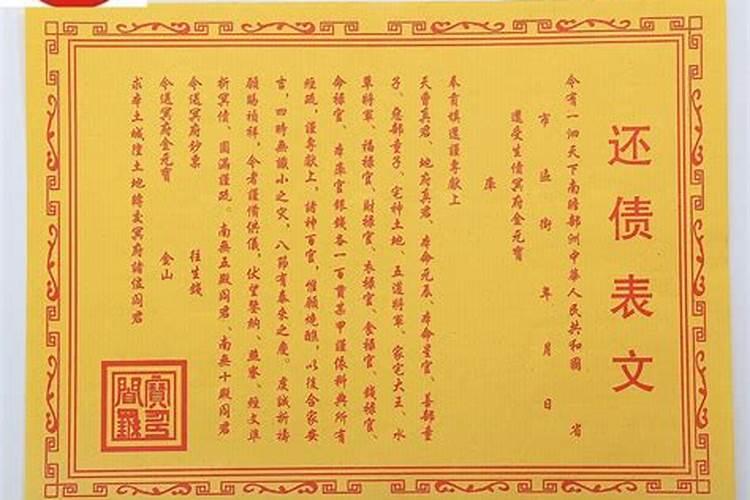 还债表文
今有一泗天下南瞻部洲中華人民共和國 省
市 區 街 年 月 日
還受生債冥府金元寶
庫
奉肯填還謹專献上
天曹真君、地府真君、本命元辰、本命星官、善部童
子、惡部童子、宅神土地、五道將軍、家宅大王、水
草將軍、福禄官、財禄官、衣禄官、食禄官、錢禄官、
命禄官、本庫官銀錢各一百貫某甲謹依科典所有
經疏，謹專献上，諸神百官，惟願燒醮，以後合家安
言，四時無識小之灾，八節有泰來之慶。虔誠祈禱
願賜禎祥，令者謹備供儀，伏望鑒納、燕寮、經文準
折冥債、圓滿謹疏。南無五殿阎君、南無十殿阎君
今送冥府鈔票 往生錢
今送冥府金元寶 金山
求本土城隍土地轉交冥府諸位阎君